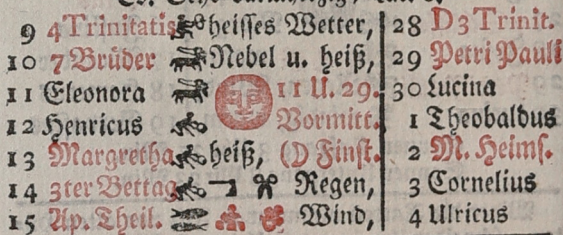 9 4 Trinitatis heisses Wetter, 28 D 3 Trinit.
10 7 Brüder Nebel u. heiß, 29 Petri Pauli
11 Eleonora 11 U. 29. 30 Lucina
12 Henricus Vormitt. 1 Theobaldus
13 Margretha heiß, (☽ Finst. 2 M. Heims.
14 3ter Bettag Regen, 3 Cornelius
15 Ap. Theil. Wind, 4 Ulricus